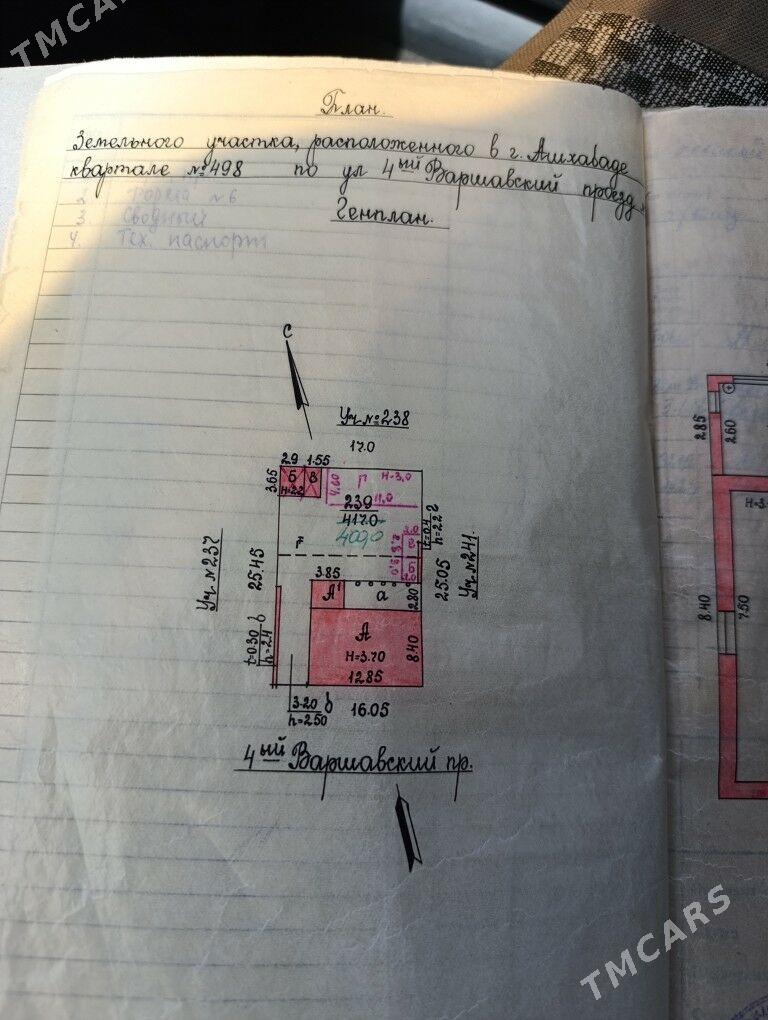 TMCARS
План.
Земельного участка, расположенного в г. Ашхабаде
квартале №498 по ул 4ый Варшавский проезд
2. форма №6
3. Сводный
4. Тех. паспорт
Генплан.
С
Уч №238
17.0
2.9 1.55
3.65
Б В
H=2.2
Г H=3.0
4.20
11.0
239
417.0
400,0
t=0.4 2
h=2.2
Уч №237
25.45
Г
25.05
Уч №241.
3.85
А1
а
2.80
А
H=3.70
12.85
8.40
t=0.30 б
h=2.4
3.20 б
h=2.50
16.05
4ый Варшавский пр.
2.85
2.60
8.40
7.50
TMCARS